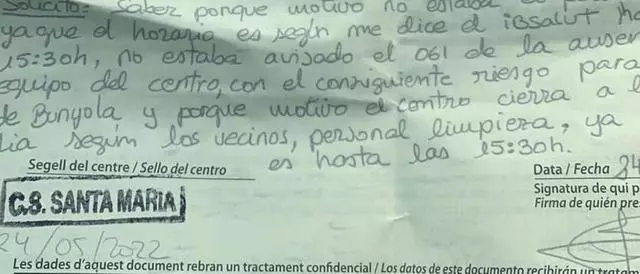 Solicito: Saber porque motivo no estaba
ya que el horario es según me dice el ibsalut
15:30h, no estaba avisado el 061 de la ausen
equipo del centro, con el consiguiente riesgo para
de Bunyola y porque motivo el centro cierra a l
dia según los vecinos, personal limpieza, ya
es hasta las 15:30h.
Segell del centre / Sello del centro
Data / Fecha 24
C.S. SANTA MARIA
Signatura de qui p
Firma de quién pre
24/05/2022
Les dades d'aquest document rebran un tractament confidencial / Los datos de este documento recibirán un tratam